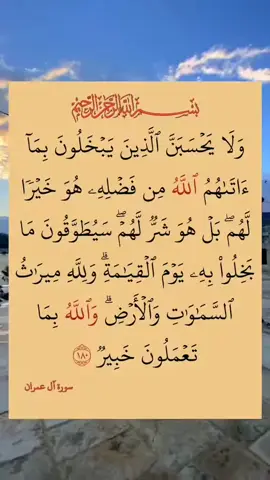 بِسْمِ ٱللَّهِ ٱلرَّحْمَٰنِ ٱلرَّحِيمِ
وَلَا يَحْسَبَنَّ ٱلَّذِينَ يَبْخَلُونَ بِمَآ
ءَاتَىٰهُمُ ٱللَّهُ مِن فَضْلِهِۦ هُوَ خَيْرًا
لَّهُم ۖ بَلْ هُوَ شَرٌّ لَّهُمْ ۖ سَيُطَوَّقُونَ مَا
بَخِلُوا۟ بِهِۦ يَوْمَ ٱلْقِيَٰمَةِ ۗ وَلِلَّهِ مِيرَٰثُ
ٱلسَّمَٰوَٰتِ وَٱلْأَرْضِ ۗ وَٱللَّهُ بِمَا
تَعْمَلُونَ خَبِيرٌ ١٨٠
سورة آل عمران